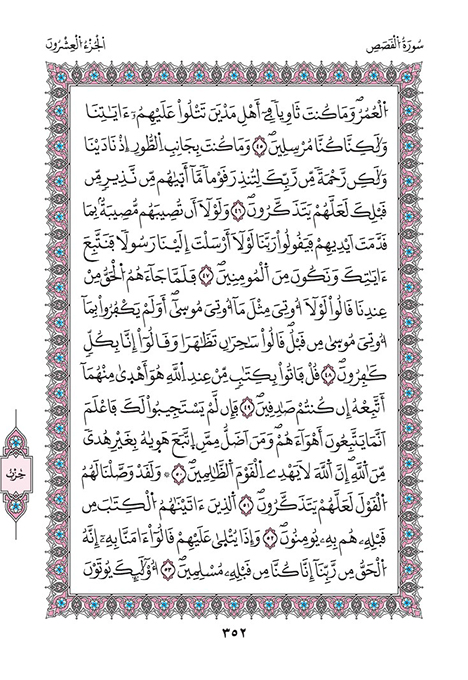 سُورَةُ الْقَصَصِ
الْجُزْءُ الْعِشْرُونَ
اَلْعُمُرُۖ وَمَا كُنتَ ثَاوِياٗ فِےٓ أَهْلِ مَدْيَنَ تَتْلُواْ عَلَيْهِمُۥٓ ءَايَٰتِنَا
وَلَٰكِنَّا كُنَّا مُرْسِلِينَۖ ٤٥ وَمَا كُنتَ بِجَانِبِ اِ۬لطُّورِ إِذْ نَادَيْنَا
وَلَٰكِن رَّحْمَةٗ مِّن رَّبِّكَ لِتُنذِرَ قَوْماٗ مَّآ أَت۪يٰهُم مِّن نَّذِيرٖ مِّن
قَبْلِكَ لَعَلَّهُمْ يَتَذَكَّرُونَۖ ٤٦ وَلَوْلَآ أَن تُصِيبَهُم مُّصِيبَةُۢ بِمَا
قَدَّمَتَ اَيْدِيهِمْ فَيَقُولُواْ رَبَّنَا لَوْلَآ أَرْسَلْتَ إِلَيْنَا رَسُولاٗ فَنَتَّبِعَ
ءَايَٰتِكَ وَنَكُونَ مِنَ اَ۬لْمُومِنِينَۖ ٤٧ فَلَمَّا جَآءَهُمُ اُ۬لْحَقُّ مِنْ
عِندِنَا قَالُواْ لَوْلَآ أُوتِيَ مِثْلَ مَآ أُوتِيَ مُوس۪يٰٓۖ أَوَلَمْ يَكْفُرُواْ بِمَآ
أُوتِيَ مُوس۪يٰ مِن قَبْلُۖ قَالُواْ سَٰحِرَٰنِ تَظَّٰهَرَا وَقَالُوٓاْ إِنَّا بِكُلّٖ
كَٰفِرُونَۖ ٤٨ قُلْ فَاتُواْ بِكِتَٰبٖ مِّنْ عِندِ اِ۬للَّهِ هُوَ أَهْد۪يٰ مِنْهُمَآ
أَتَّبِعْهُ إِن كُنتُمْ صَٰدِقِينَۖ ٤٩ فَإِن لَّمْ يَسْتَجِيبُواْ لَكَ فَاعْلَمَ
اَنَّمَا يَتَّبِعُونَ أَهْوَآءَهُمْۖ وَمَنَ اَضَلُّ مِمَّنِ اِ۪تَّبَعَ هَو۪يٰهُ بِغَيْرِ هُديٗ
مِّنَ اَ۬للَّهِۖ إِنَّ اَ۬للَّهَ لَا يَهْدِے اِ۬لْقَوْمَ اَ۬لظَّٰلِمِينَۖ ٥٠ ۞ وَلَقَدْ وَصَّلْنَا لَهُمُ
اُ۬لْقَوْلَ لَعَلَّهُمْ يَتَذَكَّرُونَۖ ٥١ اَ۬لذِينَ ءَاتَيْنَٰهُمُ اُ۬لْكِتَٰبَ مِن
قَبْلِهِۦ هُم بِهِۦ يُومِنُونَۖ ٥٢ وَإِذَا يُتْل۪يٰ عَلَيْهِمْ قَالُوٓاْ ءَامَنَّا بِهِۦٓ إِنَّهُ
اُ۬لْحَقُّ مِن رَّبِّنَآ إِنَّا كُنَّا مِن قَبْلِهِۦ مُسْلِمِينَۖ ٥٣ أُوْلَٰٓئِكَ يُوتَوْنَ
حِزْبٌ
٣٥٢